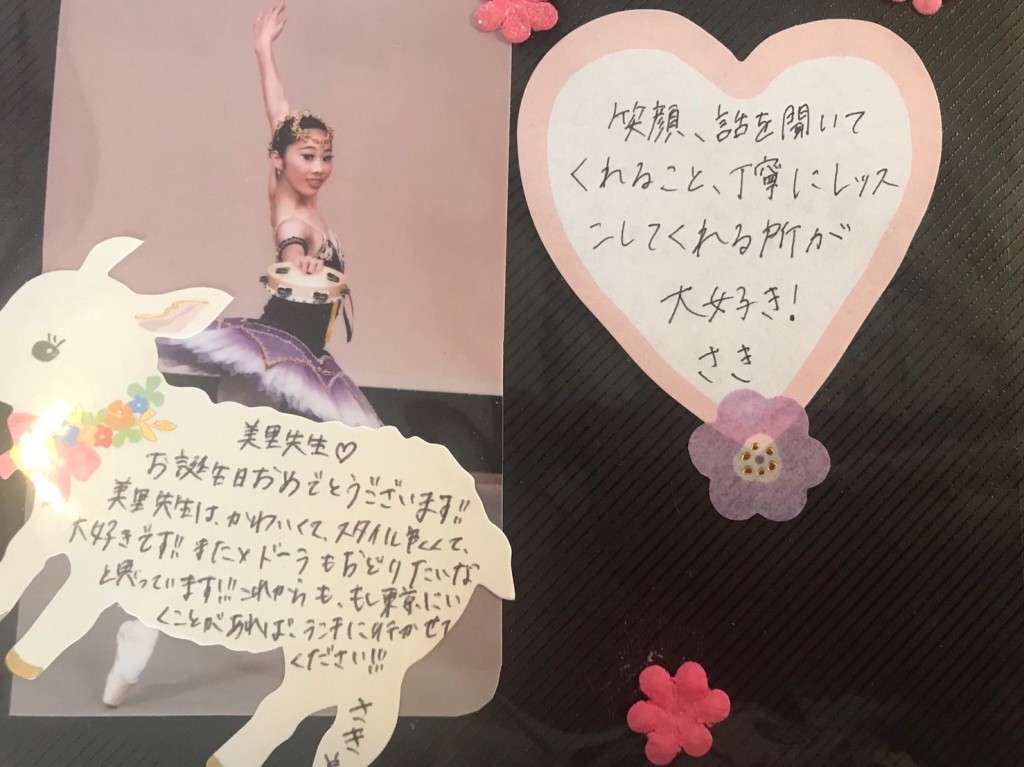 笑顔、話を聞いて
くれること、丁寧にレッス
ンしてくれる所が
大好き!
さき
美里先生♡
お誕生日おめでとうございます!!
美里先生は、かわいくて、スタイル良くて、
大好きです!! またメドーラもおどりたいな
と思っています!!! これからも、もし東京にい
くことがあれば、ランチに行かせて
ください!!!
さき